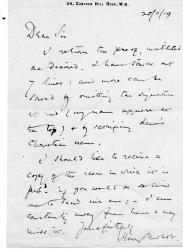 29, CAMPDEN HILL ROAD, W.8.
Dear Sir
I return the proof,
as desired. I have struck out
7 lines: and more can be
saved by omitting the signature
at end (my name appears at
the top) & by
Christian name.
I should like to receive a
copy of the issue in which it is
pubd. if you would be so kind
as to send me one; – I am
constantly away from home & may
miss it. Yours faithfully